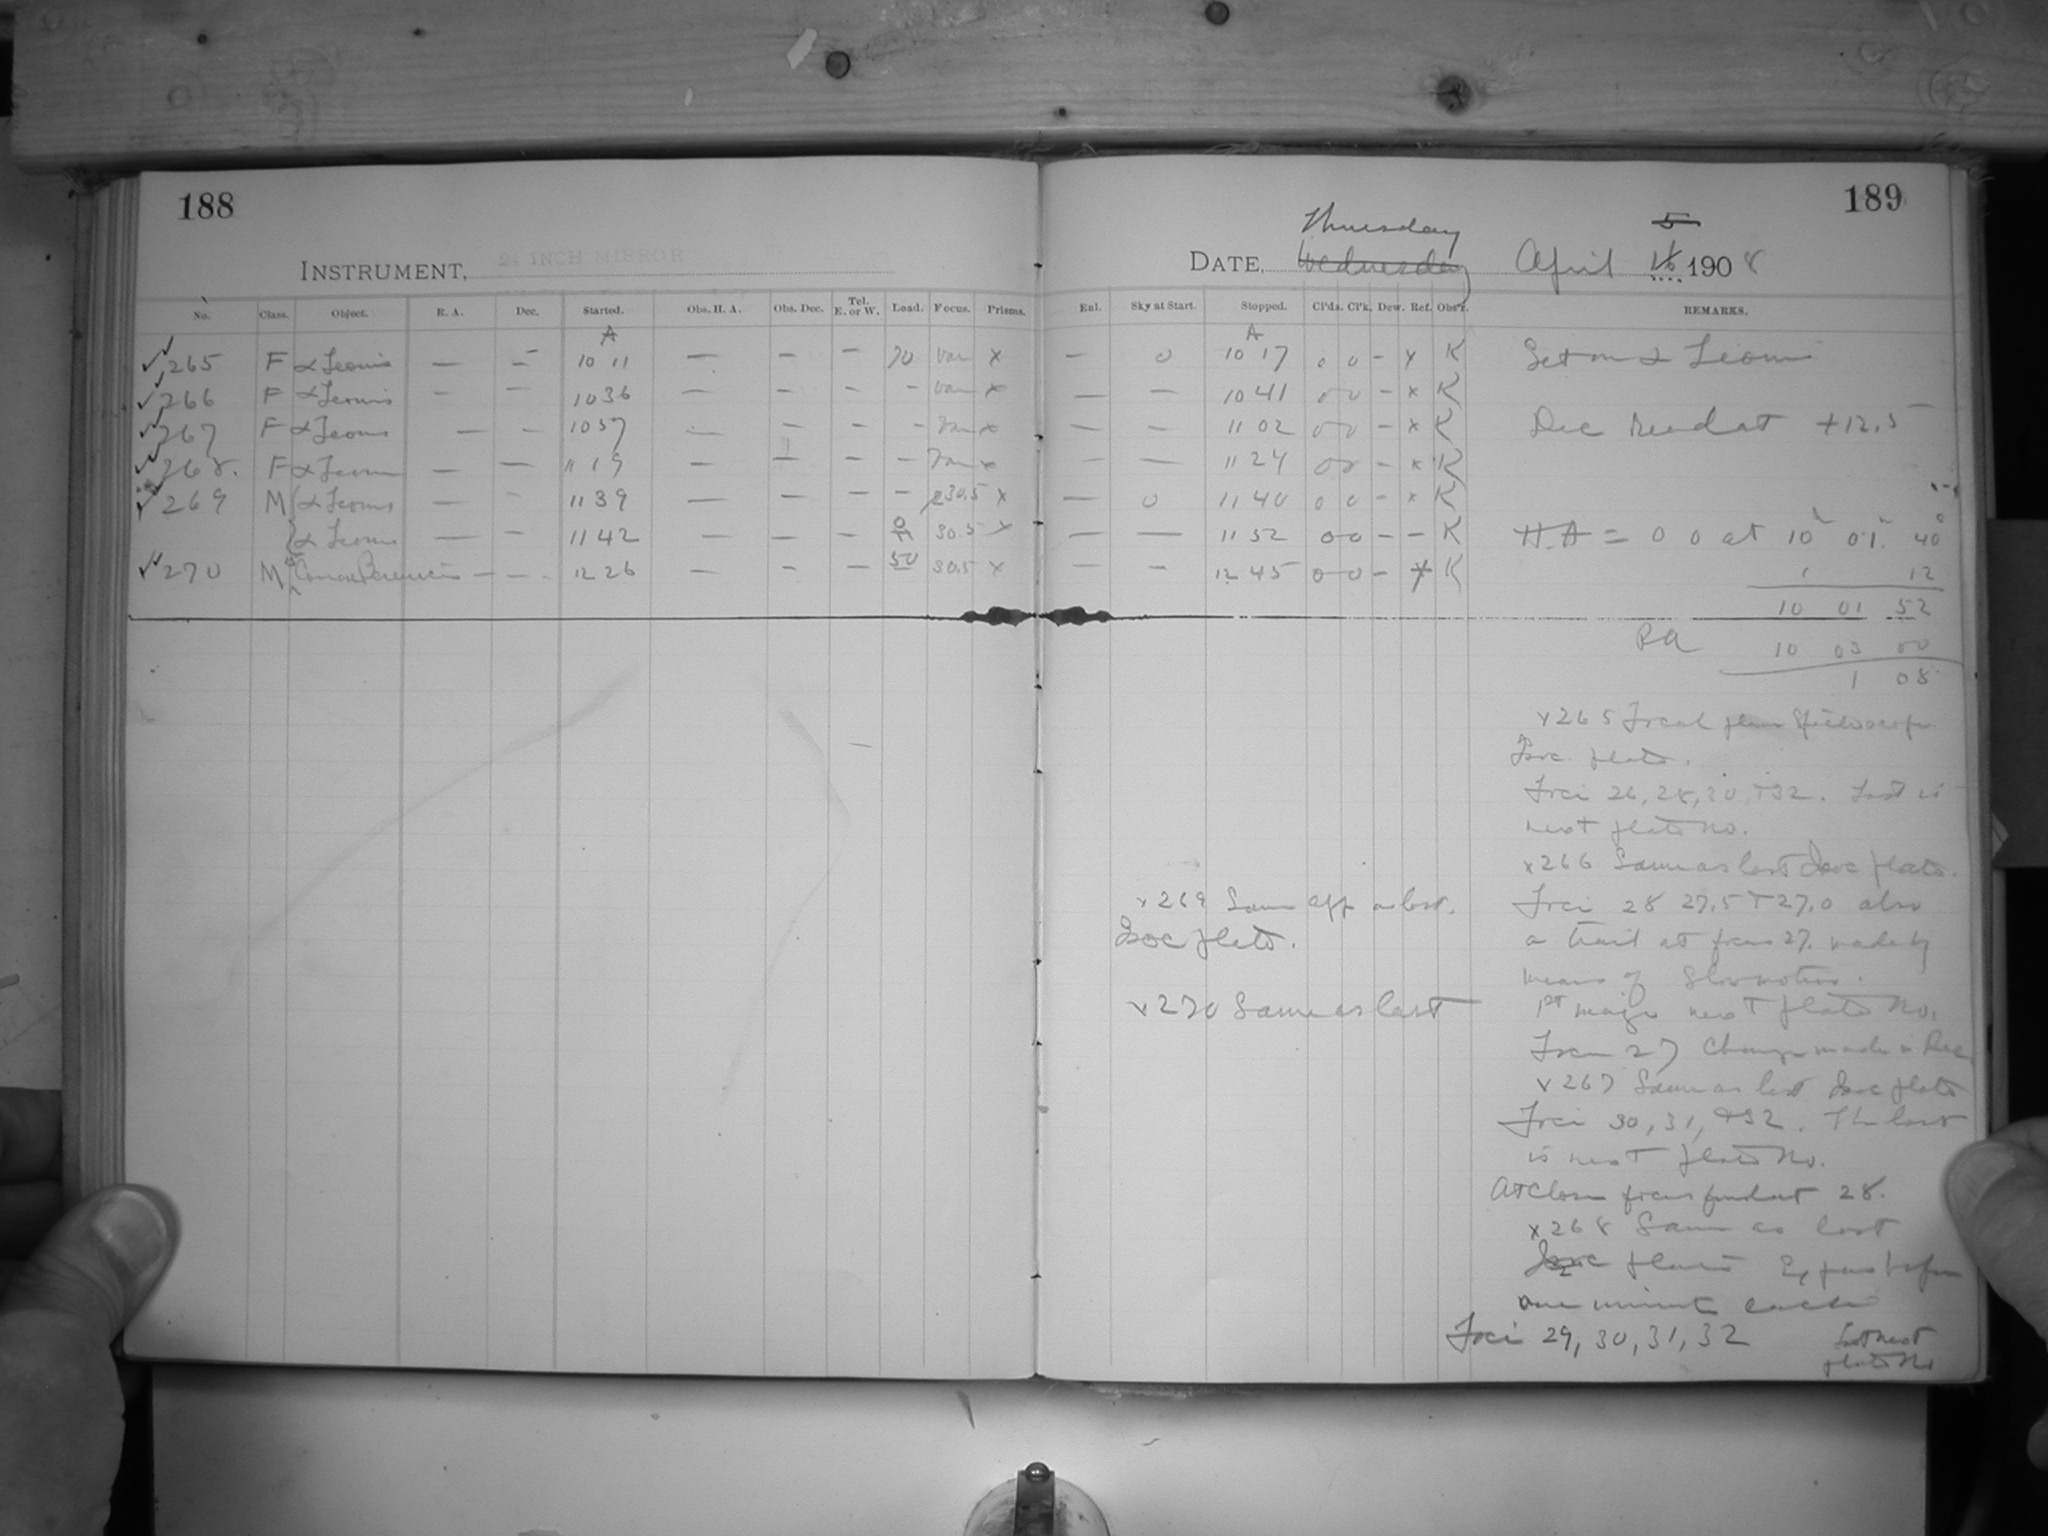 188
INSTRUMENT, 24 INCH MIRROR
No. Class. Object. R. A. Dec. Started. Obs. H. A. Obs. Dec. Tel. E. or W. Load. Focus. Prisms.
A
265 F α Leonis — — 10 11 — — — 70 Var x
266 F α Leonis — — 10 36 — — — — Var x
267 F α Leonis — — 10 57 — — — — Var x
268. F α Leonis — — 11 19 — — — — Var x
269 M α Leonis — — 11 39 — — — — 30.5 x
α Leonis — — 11 42 — — — 30.5 x
270 M Comae Berenices — — 12 26 — — — 50 30.5 x
189
Thursday 5
DATE, Wednesday April 16 1908
Enl. Sky at Start. Stopped. Cl'ds. Cl'k. Dew. Ref. Obs'r. REMARKS.
A
— 0 10 17 0 0 – x K Set on α Leonis
— — 10 41 0 0 – x K
— — 11 02 0 0 – x K Dec read at +12.5
— — 11 24 0 0 – x K
— 0 11 40 0 0 – x K
— — 11 52 0 0 – – K H.A = 0 0 at 10 01 40
— — 12 45 0 0 – x K 1 12
10 01 52
RA 10 03 00
1 08
x265 Focal plane Spectroscope
Isoc. plate.
Foci 26, 28, 30, + 32. Last is
next plate No.
x266 Same as last Isoc plate.
Foci 28 27.5 + 27.0 also
a trail at focus 27. made by
means of slow motion.
1st image next plate No.
Focus 27 Change made in Dec
x267 Same as last Isoc plate
Foci 30, 31, + 32. The last
is next plate No.
At close focus found at 28.
x268 Same as last
Isoc plate
one minute each
Foci 29, 30, 31, 32 Last next
plate No
x269 Same app as last.
Isoc plate.
x270 Same as last